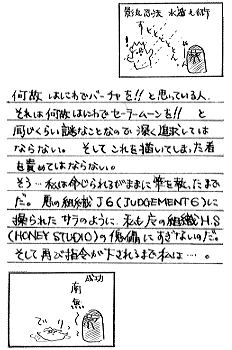 影流忍法 水遁の術
何故はにわでバーチャを!!と思っている人、
それは何故はにわでセーラームーンを!!と
同じくらい謎なことなので深く追求しては
ならない。そしてこれを描いてしまった者
を責めてはならない。
そう…私は命じられるがままに筆を執ったまで
だ。悪の組織J6(JUDGEMENT6)に
操られたサラのように、私も 組織H.S
(HONEY STUDIO)の傀儡にすぎないのだ。
そして再び指令が下されるまで私は…。
成功
南無